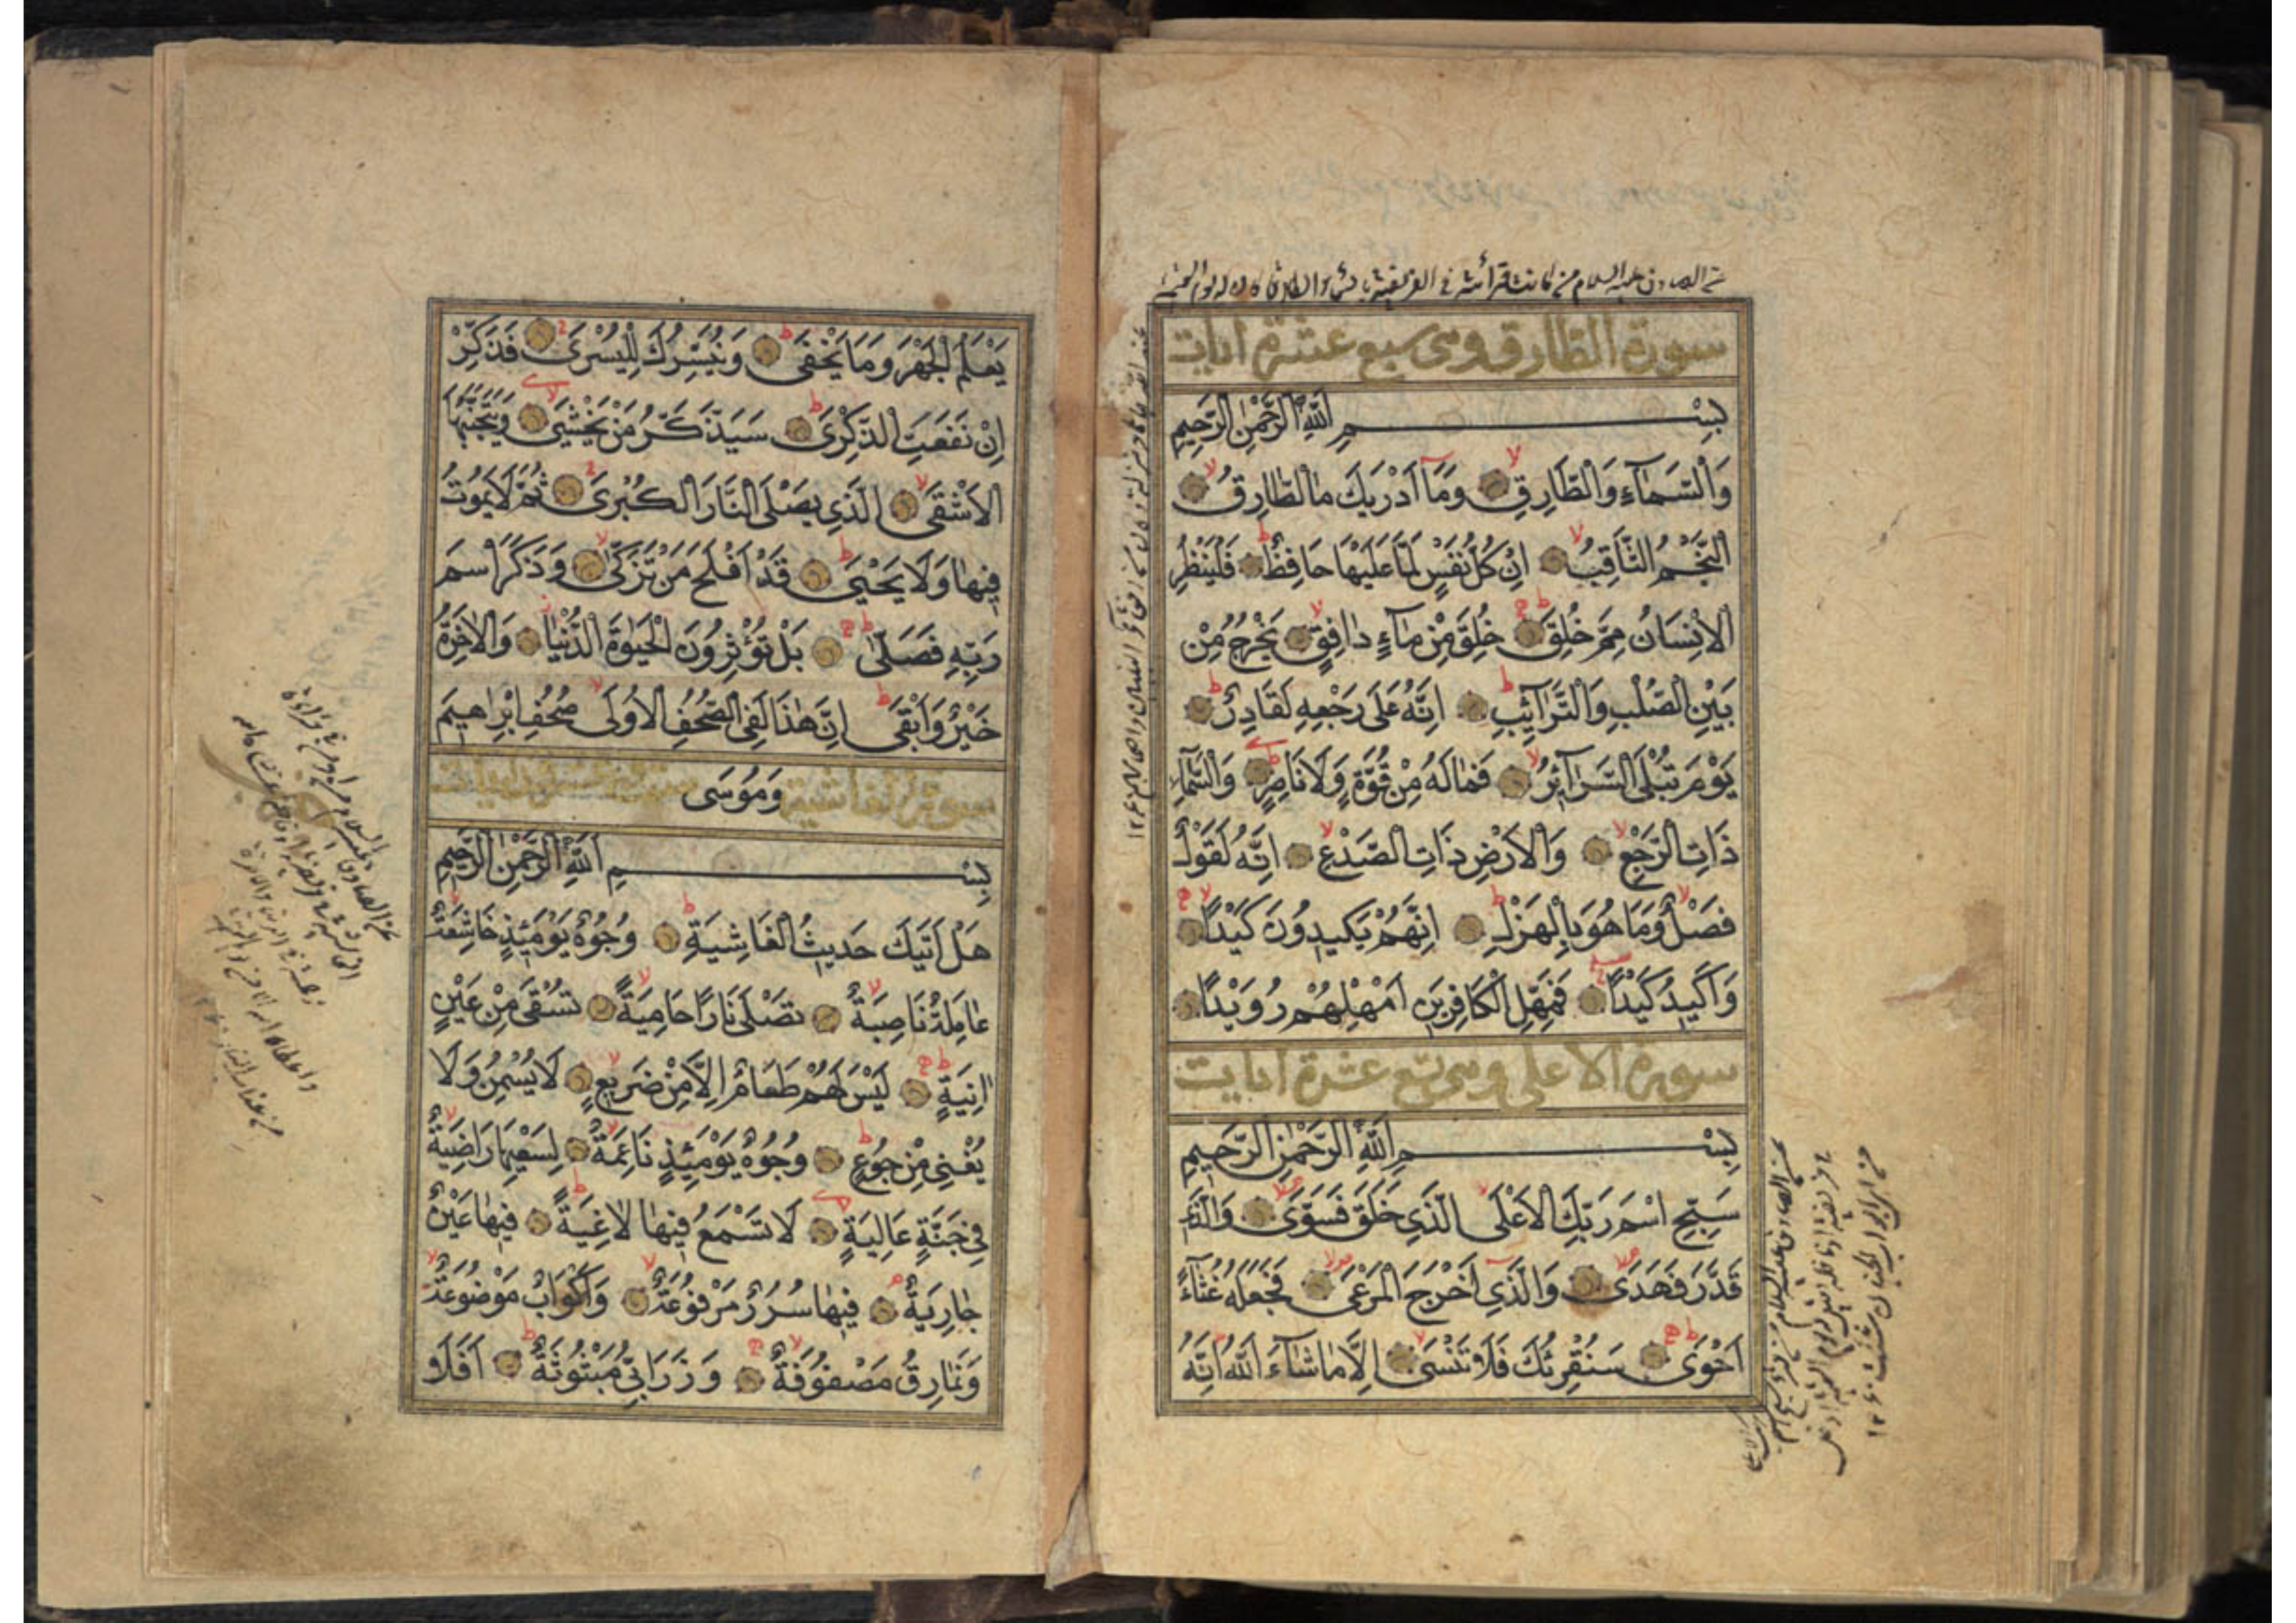 سورة الطارق وهى سبع عشرة ايات
بِسْمِ اللهِ الرَّحْمٰنِ الرَّحِيمِ
وَالسَّمَاۤءِ وَالطَّارِقِ وَمَاۤ اَدْرٰيكَ مَا الطَّارِقُ
النَّجْمُ الثَّاقِبُ اِنْ كُلُّ نَفْسٍ لَمَّا عَلَيْهَا حَافِظٌ فَلْيَنْظُرِ
الْاِنْسَانُ مِمَّ خُلِقَ خُلِقَ مِنْ مَاۤءٍ دَافِقٍ يَخْرُجُ مِنْ
بَيْنِ الصُّلْبِ وَالتَّرَاۤئِبِ اِنَّهُ عَلٰى رَجْعِهِ لَقَادِرٌ
يَوْمَ تُبْلَى السَّرَاۤئِرُ فَمَالَهُ مِنْ قُوَّةٍ وَلَا نَاصِرٍ وَالسَّمَاۤءِ
ذَاتِ الرَّجْعِ وَالْاَرْضِ ذَاتِ الصَّدْعِ اِنَّهُ لَقَوْلٌ
فَصْلٌ وَمَا هُوَ بِالْهَزْلِ اِنَّهُمْ يَكِيدُونَ كَيْدًا
وَاَكِيدُ كَيْدًا فَمَهِّلِ الْكَافِرِينَ اَمْهِلْهُمْ رُوَيْدًا
سورة الاعلى وهى تسع عشرة ايات
بِسْمِ اللهِ الرَّحْمٰنِ الرَّحِيمِ
سَبِّحِ اسْمَ رَبِّكَ الْاَعْلَى الَّذِي خَلَقَ فَسَوّٰى وَالَّذِي
قَدَّرَ فَهَدٰى وَالَّذِي اَخْرَجَ الْمَرْعٰى فَجَعَلَهُ غُثَاۤءً
اَحْوٰى سَنُقْرِئُكَ فَلَا تَنْسٰى اِلَّا مَا شَاۤءَ اللهُ اِنَّهُ
يَعْلَمُ الْجَهْرَ وَمَا يَخْفٰى وَنُيَسِّرُكَ لِلْيُسْرٰى فَذَكِّرْ
اِنْ نَفَعَتِ الذِّكْرٰى سَيَذَّكَّرُ مَنْ يَخْشٰى وَيَتَجَنَّبُهَا
الْاَشْقَى الَّذِي يَصْلَى النَّارَ الْكُبْرٰى ثُمَّ لَا يَمُوتُ
فِيهَا وَلَا يَحْيٰى قَدْ اَفْلَحَ مَنْ تَزَكّٰى وَذَكَرَ اسْمَ
رَبِّهِ فَصَلّٰى بَلْ تُؤْثِرُونَ الْحَيٰوةَ الدُّنْيَا وَالْاٰخِرَةُ
خَيْرٌ وَاَبْقٰى اِنَّ هٰذَا لَفِي الصُّحُفِ الْاُولٰى صُحُفِ اِبْرٰهِيمَ
وَمُوسَى
سورة الغاشية
بِسْمِ اللهِ الرَّحْمٰنِ الرَّحِيمِ
هَلْ اَتٰيكَ حَدِيثُ الْغَاشِيَةِ وُجُوهٌ يَوْمَئِذٍ خَاشِعَةٌ
عَامِلَةٌ نَاصِبَةٌ تَصْلٰى نَارًا حَامِيَةً تُسْقٰى مِنْ عَيْنٍ
اٰنِيَةٍ لَيْسَ لَهُمْ طَعَامٌ اِلَّا مِنْ ضَرِيعٍ لَا يُسْمِنُ وَلَا
يُغْنِي مِنْ جُوعٍ وُجُوهٌ يَوْمَئِذٍ نَاعِمَةٌ لِسَعْيِهَا رَاضِيَةٌ
فِي جَنَّةٍ عَالِيَةٍ لَا تَسْمَعُ فِيهَا لَاغِيَةً فِيهَا عَيْنٌ
جَارِيَةٌ فِيهَا سُرُرٌ مَرْفُوعَةٌ وَاَكْوَابٌ مَوْضُوعَةٌ
وَنَمَارِقُ مَصْفُوفَةٌ وَزَرَابِيُّ مَبْثُوثَةٌ اَفَلَا